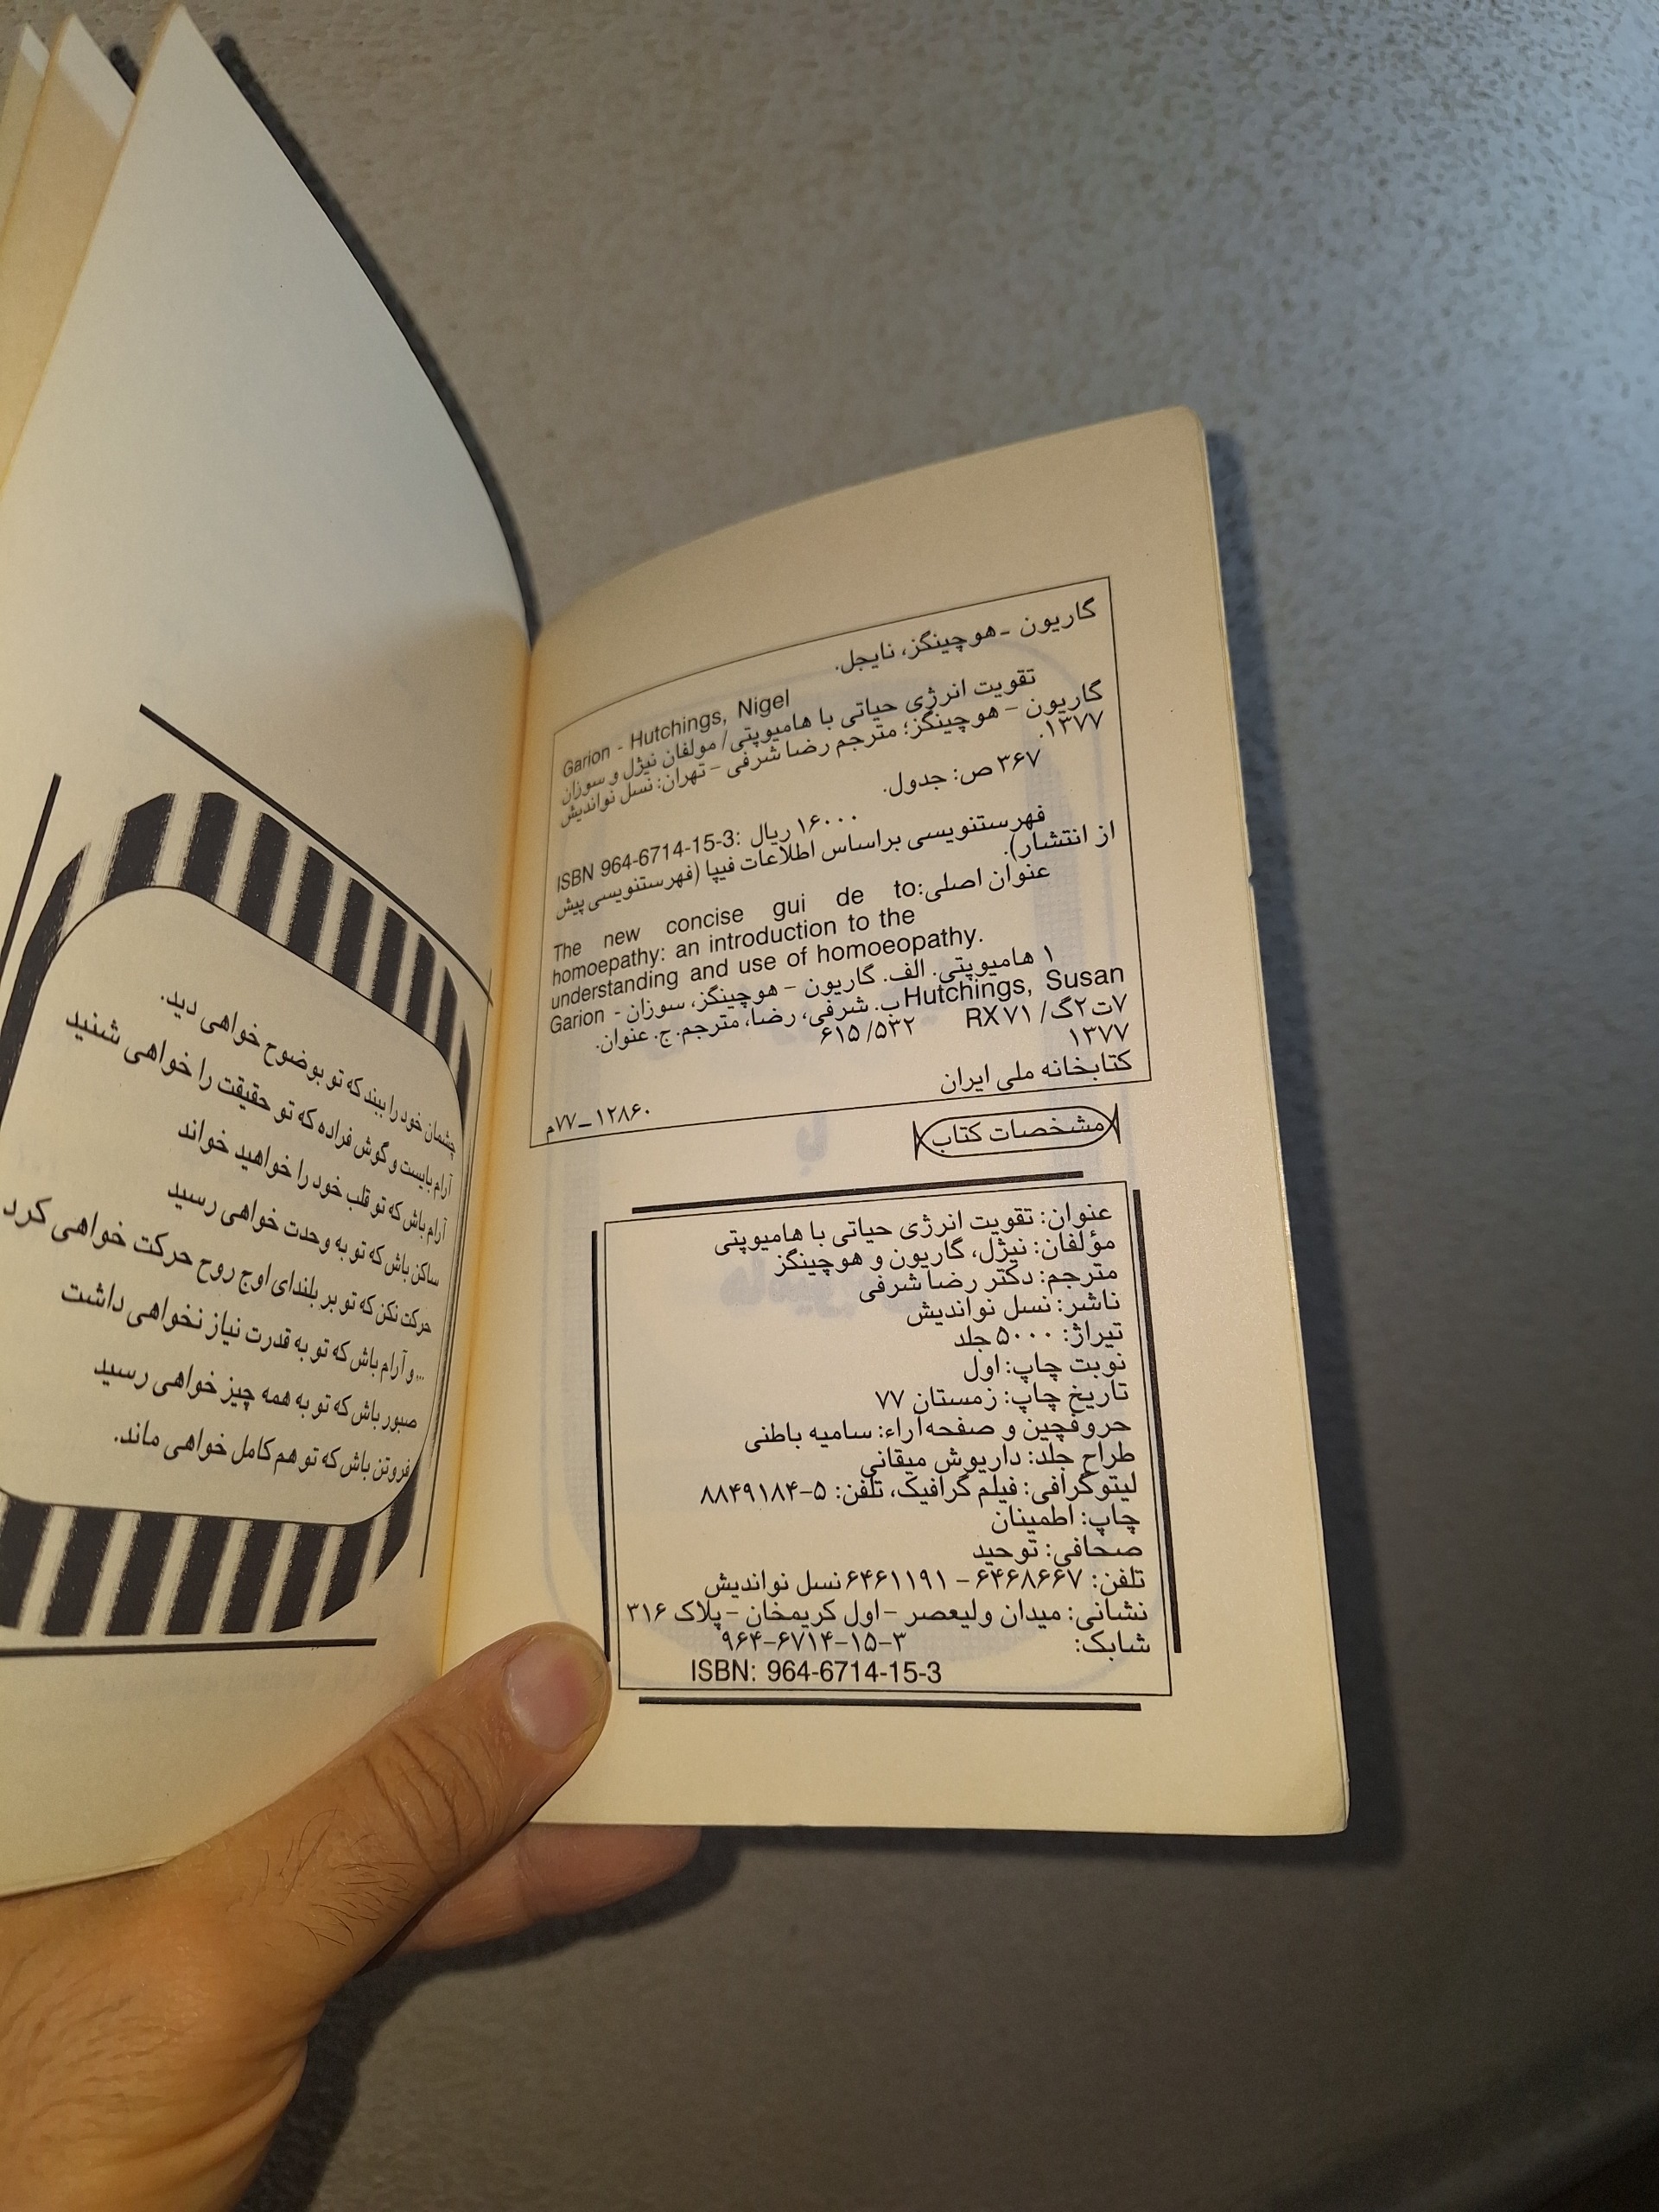 گاریون -هوچینگز، نایجل.
Garion - Hutchings, Nigel
تقویت انرژی حیاتی با هامیوپتی/ مولفان نیژل و سوزان
گاریون – هوچینگز؛ مترجم رضا شرفی – تهران: نسل نواندیش
۱۳۷۷.
۳۶۷ ص: جدول.
ISBN 964-6714-15-3: ۱۶۰۰۰ ریال
فهرستنویسی براساس اطلاعات فیپا (فهرستنویسی پیش
از انتشار).
عنوان اصلی: The new concise gui de to
homoepathy: an introduction to the
understanding and use of homoeopathy.
۱ هامیوپتی. الف. گاریون – هوچینگز، سوزان - Garion
Hutchings, Susan ب. شرفی، رضا، مترجم. ج. عنوان.
۷ت۲گ/ RX ۷۱ ۶۱۵/۵۳۲
۱۳۷۷
کتابخانه ملی ایران
۱۲۸۶۰ـ۷۷م
مشخصات کتاب
عنوان: تقویت انرژی حیاتی با هامیوپتی
مؤلفان: نیژل، گاریون و هوچینگز
مترجم: دکتر رضا شرفی
ناشر: نسل نواندیش
تیراژ: ۵۰۰۰ جلد
نوبت چاپ: اول
تاریخ چاپ: زمستان ۷۷
حروفچین و صفحه‌آراء: سامیه باطنی
طراح جلد: داریوش میقانی
لیتوگرافی: فیلم گرافیک، تلفن: ۵-۸۸۴۹۱۸۴
چاپ: اطمینان
صحافی: توحید
تلفن: ۶۴۶۸۶۶۷ – ۶۴۶۱۱۹۱ نسل نواندیش
نشانی: میدان ولیعصر –اول کریمخان –پلاک ۳۱۶
شابک: ۳-۱۵-۶۷۱۴-۹۶۴
ISBN: 964-6714-15-3
چشمان خود را ببند که تو بوضوح خواهی دید.
آرام بایست و گوش فراده که تو حقیقت را خواهی شنید
آرام باش که تو قلب خود را خواهید خواند
ساکن باش که تو به وحدت خواهی رسید
حرکت نکن که تو بر بلندای اوج روح حرکت خواهی کرد
... و آرام باش که تو به قدرت نیاز نخواهی داشت
صبور باش که تو به همه چیز خواهی رسید
فروتن باش که تو هم کامل خواهی ماند.